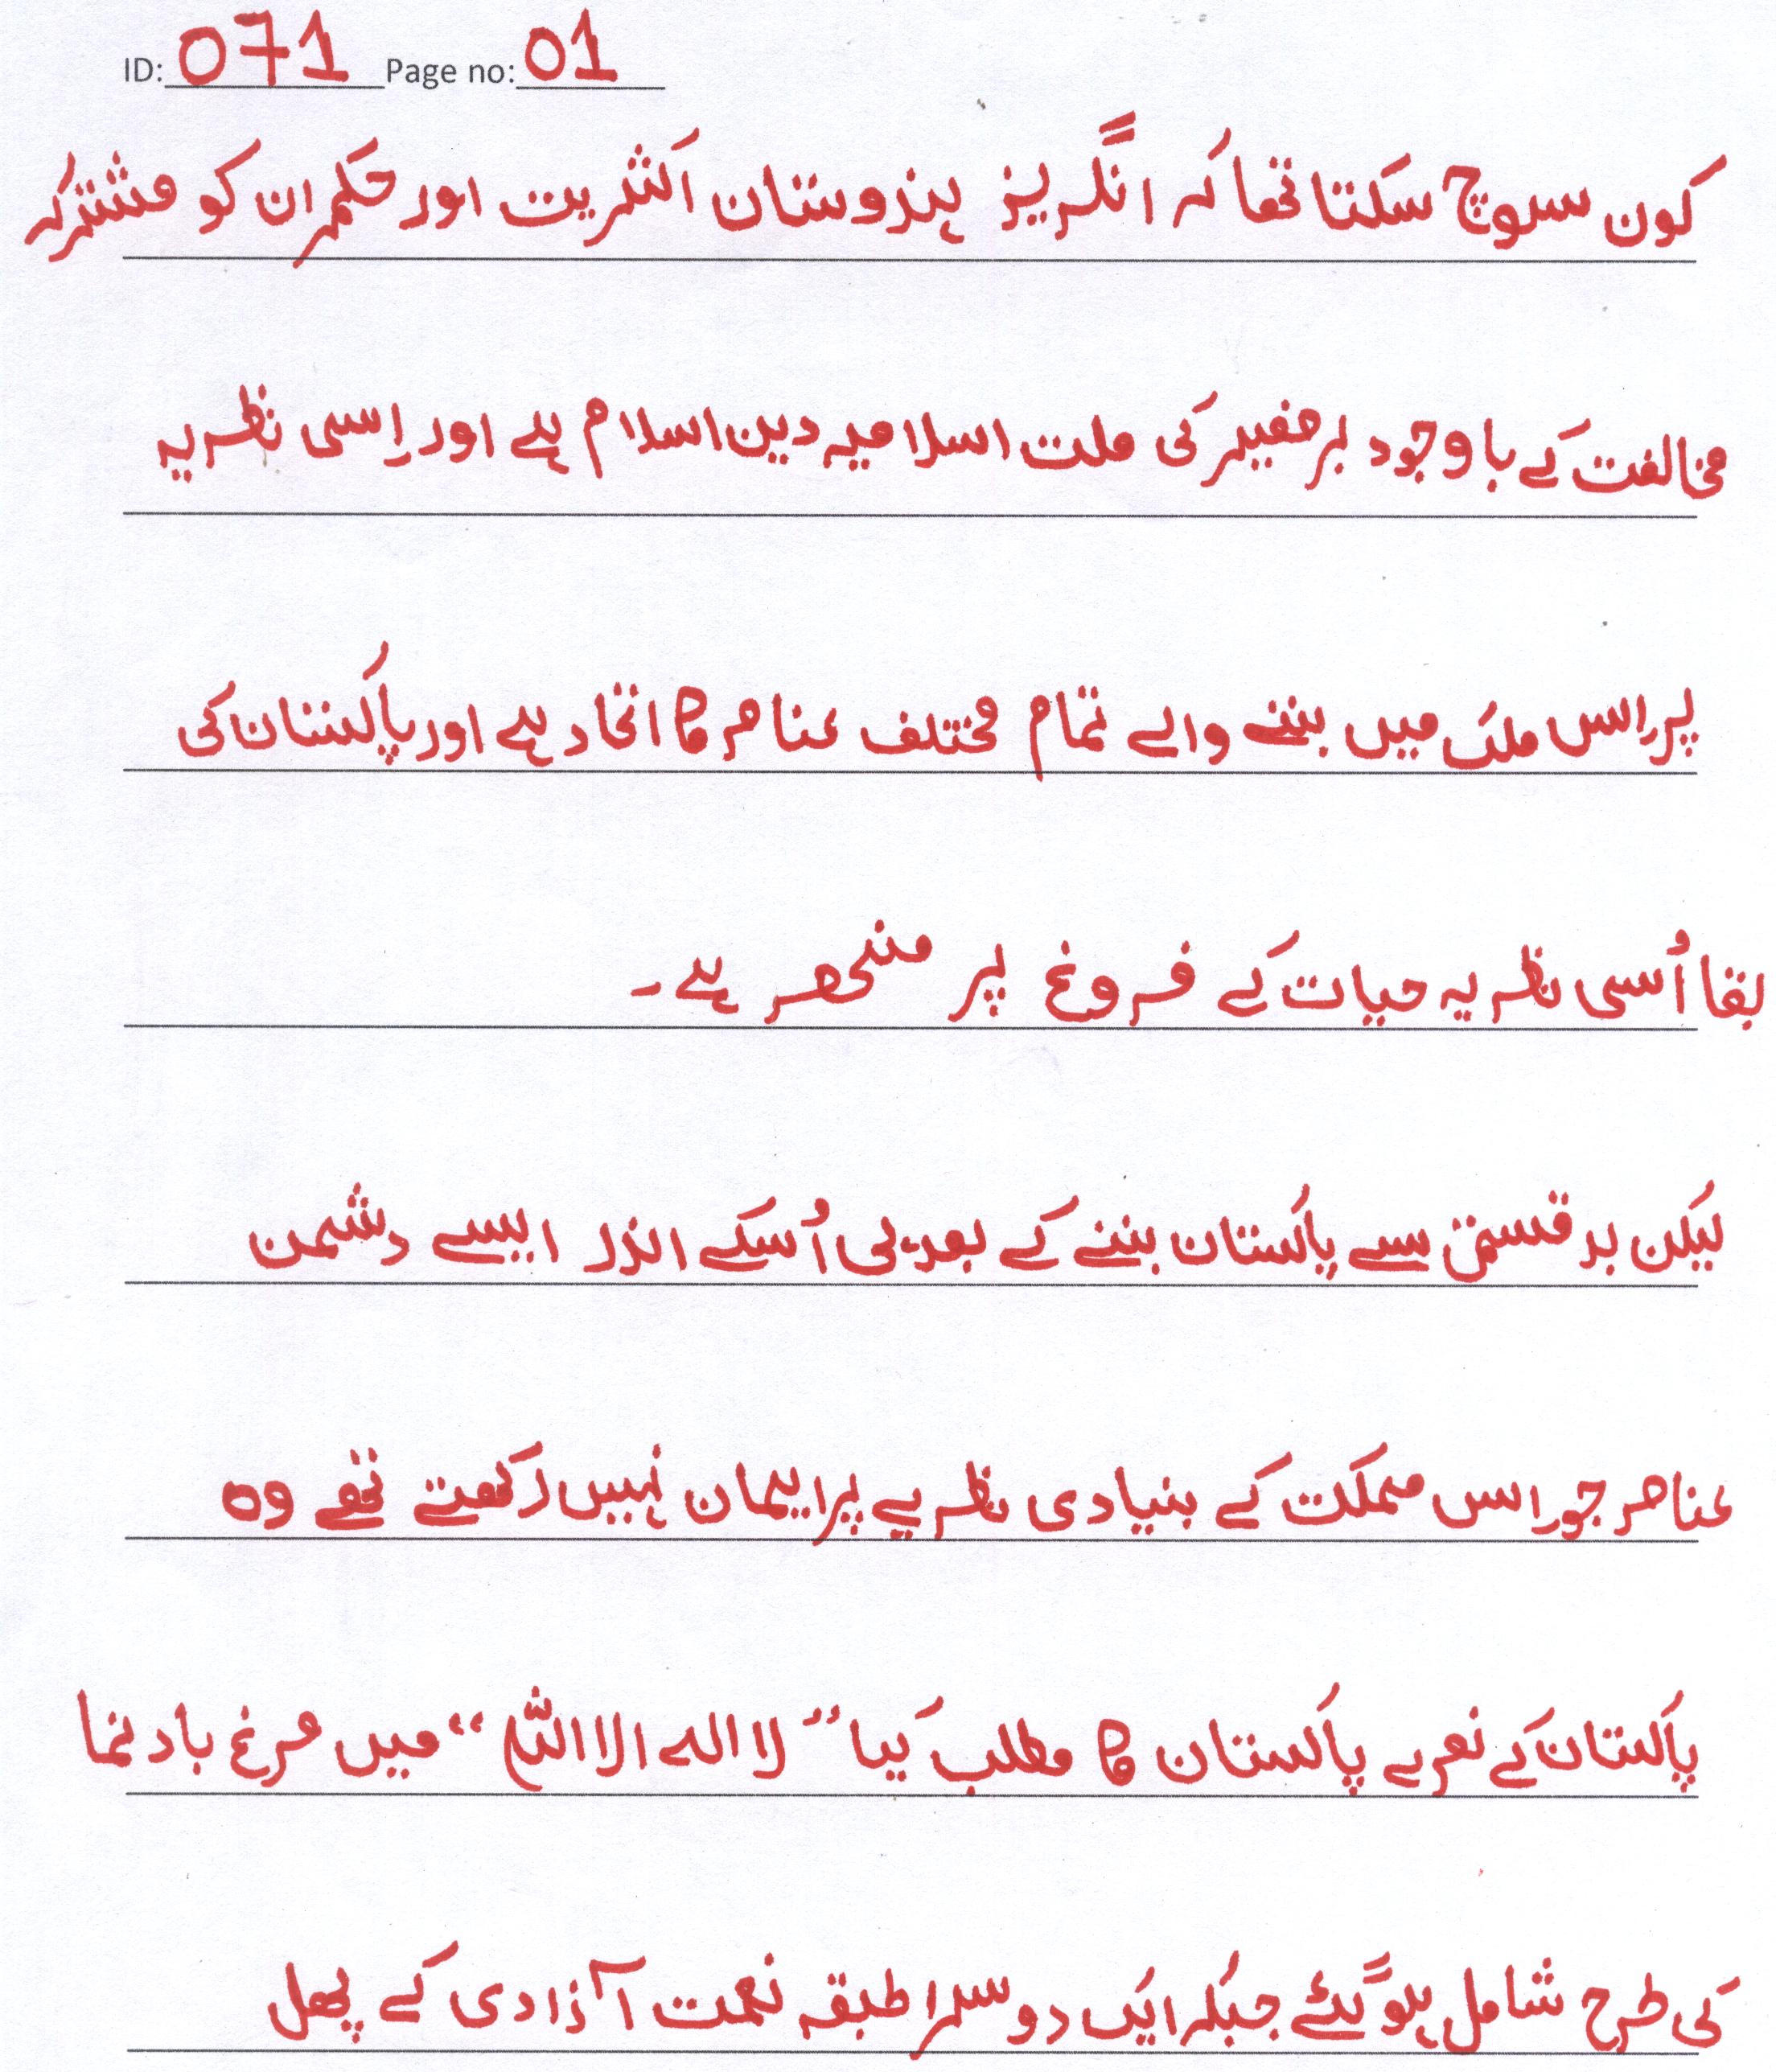 ID: 071 Page no: 01
کون سوچ سکتا تھا کہ انگریز ہندوستان اکثریت اور حکمران کو مشترکہ
مخالفت کے باوجود برصغیر کی ملت اسلامیہ دین اسلام ہے اور اِسی نظریہ
پر اِس ملک میں بننے والے تمام مختلف عناصر کا اتحاد ہے اور پاکستان کی
بقا اُسی نظریہ حیات کے فروغ پر منحصر ہے۔
لیکن بدقسمتی سے پاکستان بننے کے بعد ہی اُسکے اندر ایسے دشمن
عناصر جو اِس مملکت کے بنیادی نظریے پر ایمان نہیں رکھتے تھے وہ
پاکستان کے نعرے پاکستان کا مطلب کیا " لا الہ الا اللہ " میں مرغ بادنما
کی طرح شامل ہو گئے جبکہ ایک دوسرا طبقہ نعمت آزادی کے پھل